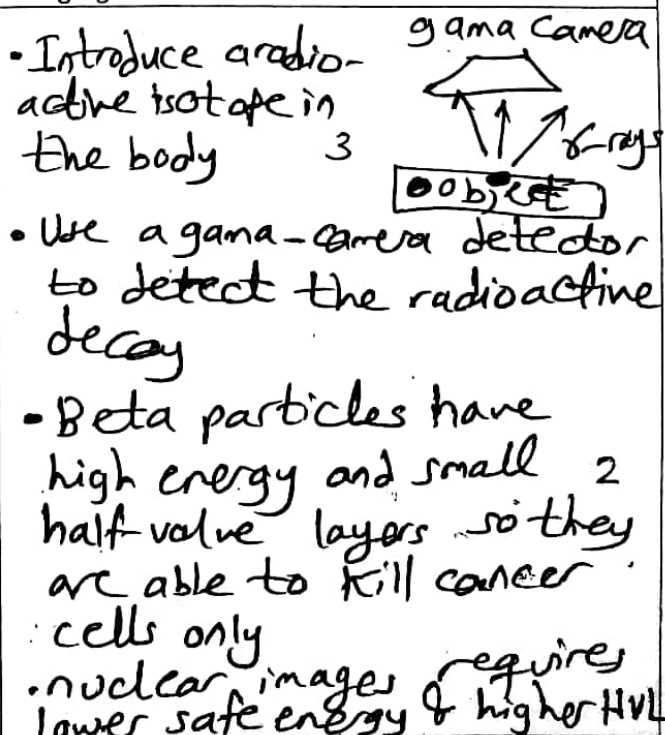 gama camera
• Introduce a radio-
active isotope in
the body 3
γ-rays
object
• Use a gama-camera detector
to detect the radioactive
decay
- Beta particles have
high energy and small 2
half-value layers so they
are able to kill cancer
cells only
. nuclear images requires
lower safe energy & higher HVL